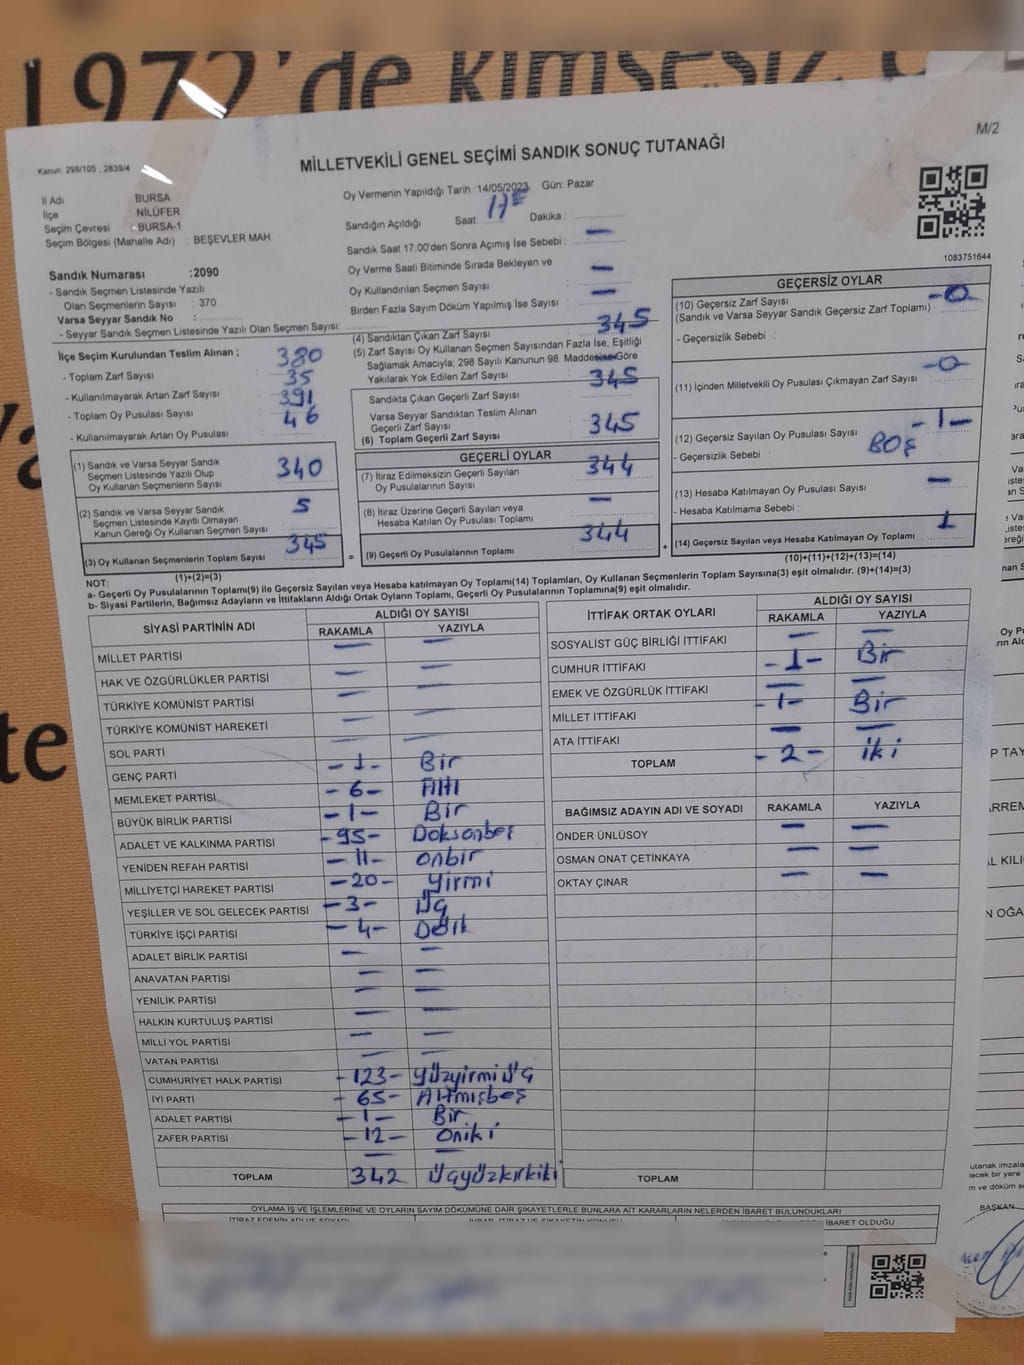 1972'de kimsesiz ç
M/2
Kanun: 298/105 , 2839/4
MİLLETVEKİLİ GENEL SEÇİMİ SANDIK SONUÇ TUTANAĞI
İl Adı : BURSA
İlçe : NİLÜFER
Seçim Çevresi : BURSA-1
Seçim Bölgesi (Mahalle Adı) : BEŞEVLER MAH
Sandık Numarası :2090
- Sandık Seçmen Listesinde Yazılı
Olan Seçmenlerin Sayısı : 370
Varsa Seyyar Sandık No :
- Seyyar Sandık Seçmen Listesinde Yazılı Olan Seçmen Sayısı:
Oy Vermenin Yapıldığı Tarih :14/05/2023 Gün: Pazar
Sandığın Açıldığı Saat: 17 Dakika :
Sandık Saat 17:00'den Sonra Açımış İse Sebebi : —
Oy Verme Saati Bitiminde Sırada Bekleyen ve
Oy Kullandırılan Seçmen Sayısı : —
Birden Fazla Sayım Döküm Yapılmış İse Sayısı : —
1083751644
İlçe Seçim Kurulundan Teslim Alınan ;
- Toplam Zarf Sayısı : 380
- Kullanılmayarak Artan Zarf Sayısı : 35
- Toplam Oy Pusulası Sayısı : 391
- Kullanılmayarak Artan Oy Pusulası : 46
(1) Sandık ve Varsa Seyyar Sandık
Seçmen Listesinde Yazılı Olup
Oy Kullanan Seçmenlerin Sayısı : 340
(2) Sandık ve Varsa Seyyar Sandık
Seçmen Listesinde Kayıtlı Olmayan
Kanun Gereği Oy Kullanan Seçmen Sayısı : 5
(3) Oy Kullanan Seçmenlerin Toplam Sayısı : 345
(1)+(2)=(3)
(4) Sandıktan Çıkan Zarf Sayısı : 345
(5) Zarf Sayısı Oy Kullanan Seçmen Sayısından Fazla İse, Eşitliği
Sağlamak Amacıyla; 298 Sayılı Kanunun 98. Maddesine Göre
Yakılarak Yok Edilen Zarf Sayısı : —
Sandıkta Çıkan Geçerli Zarf Sayısı : 345
Varsa Seyyar Sandıktan Teslim Alınan
Geçerli Zarf Sayısı :
(6) Toplam Geçerli Zarf Sayısı : 345
GEÇERLİ OYLAR
(7) İtiraz Edilmeksizin Geçerli Sayılan
Oy Pusulalarının Sayısı : 344
(8) İtiraz Üzerine Geçerli Sayılan veya
Hesaba Katılan Oy Pusulası Toplamı : —
= (9) Geçerli Oy Pusulalarının Toplamı : 344
GEÇERSİZ OYLAR
(10) Geçersiz Zarf Sayısı
(Sandık ve Varsa Seyyar Sandık Geçersiz Zarf Toplamı) : -0-
- Geçersizlik Sebebi :
(11) İçinden Milletvekili Oy Pusulası Çıkmayan Zarf Sayısı : -0-
(12) Geçersiz Sayılan Oy Pusulası Sayısı : -1-
- Geçersizlik Sebebi : BOŞ
(13) Hesaba Katılmayan Oy Pusulası Sayısı : —
- Hesaba Katılmama Sebebi :
+ (14) Geçersiz Sayılan veya Hesaba Katılmayan Oy Toplamı : 1
(10)+(11)+(12)+(13)=(14)
NOT:
a- Geçerli Oy Pusulalarının Toplamı(9) ile Geçersiz Sayılan veya Hesaba katılmayan Oy Toplamı(14) Toplamları, Oy Kullanan Seçmenlerin Toplam Sayısına(3) eşit olmalıdır. (9)+(14)=(3)
b- Siyasi Partilerin, Bağımsız Adayların ve İttifakların Aldığı Ortak Oyların Toplamı, Geçerli Oy Pusulalarının Toplamına(9) eşit olmalıdır.
SİYASİ PARTİNİN ADI ALDIĞI OY SAYISI
RAKAMLA YAZIYLA
MİLLET PARTİSİ — —
HAK VE ÖZGÜRLÜKLER PARTİSİ — —
TÜRKİYE KOMÜNİST PARTİSİ — —
TÜRKİYE KOMÜNİST HAREKETİ — —
SOL PARTİ — —
GENÇ PARTİ -1- Bir
MEMLEKET PARTİSİ -6- Altı
BÜYÜK BİRLİK PARTİSİ -1- Bir
ADALET VE KALKINMA PARTİSİ -95- Doksanbeş
YENİDEN REFAH PARTİSİ -11- onbir
MİLLİYETÇİ HAREKET PARTİSİ -20- Yirmi
YEŞİLLER VE SOL GELECEK PARTİSİ -3- Üç
TÜRKİYE İŞÇİ PARTİSİ -4- Dört
ADALET BİRLİK PARTİSİ — —
ANAVATAN PARTİSİ — —
YENİLİK PARTİSİ — —
HALKIN KURTULUŞ PARTİSİ — —
MİLLİ YOL PARTİSİ — —
VATAN PARTİSİ — —
CUMHURİYET HALK PARTİSİ -123- Yüzyirmiüç
İYİ PARTİ -65- Altmışbeş
ADALET PARTİSİ -1- Bir
ZAFER PARTİSİ -12- Oniki
TOPLAM 342 Üçyüzkırkiki
İTTİFAK ORTAK OYLARI ALDIĞI OY SAYISI
RAKAMLA YAZIYLA
SOSYALİST GÜÇ BİRLİĞİ İTTİFAKI — —
CUMHUR İTTİFAKI -1- Bir
EMEK VE ÖZGÜRLÜK İTTİFAKI — —
MİLLET İTTİFAKI -1- Bir
ATA İTTİFAKI — —
TOPLAM -2- iki
BAĞIMSIZ ADAYIN ADI VE SOYADI RAKAMLA YAZIYLA
ÖNDER ÜNLÜSOY — —
OSMAN ONAT ÇETİNKAYA — —
OKTAY ÇINAR — —
TOPLAM
OYLAMA İŞ VE İŞLEMLERİNE VE OYLARIN SAYIM DÖKÜMÜNE DAİR ŞİKAYETLERLE BUNLARA AİT KARARLARIN NELERDEN İBARET BULUNDUKLARI
İBARET OLDUĞU
te
P TAY
ARREM
AL KILIÇ
N OĞA
utanak imzala
lecek bir yere
m ve döküm s
BAŞKAN